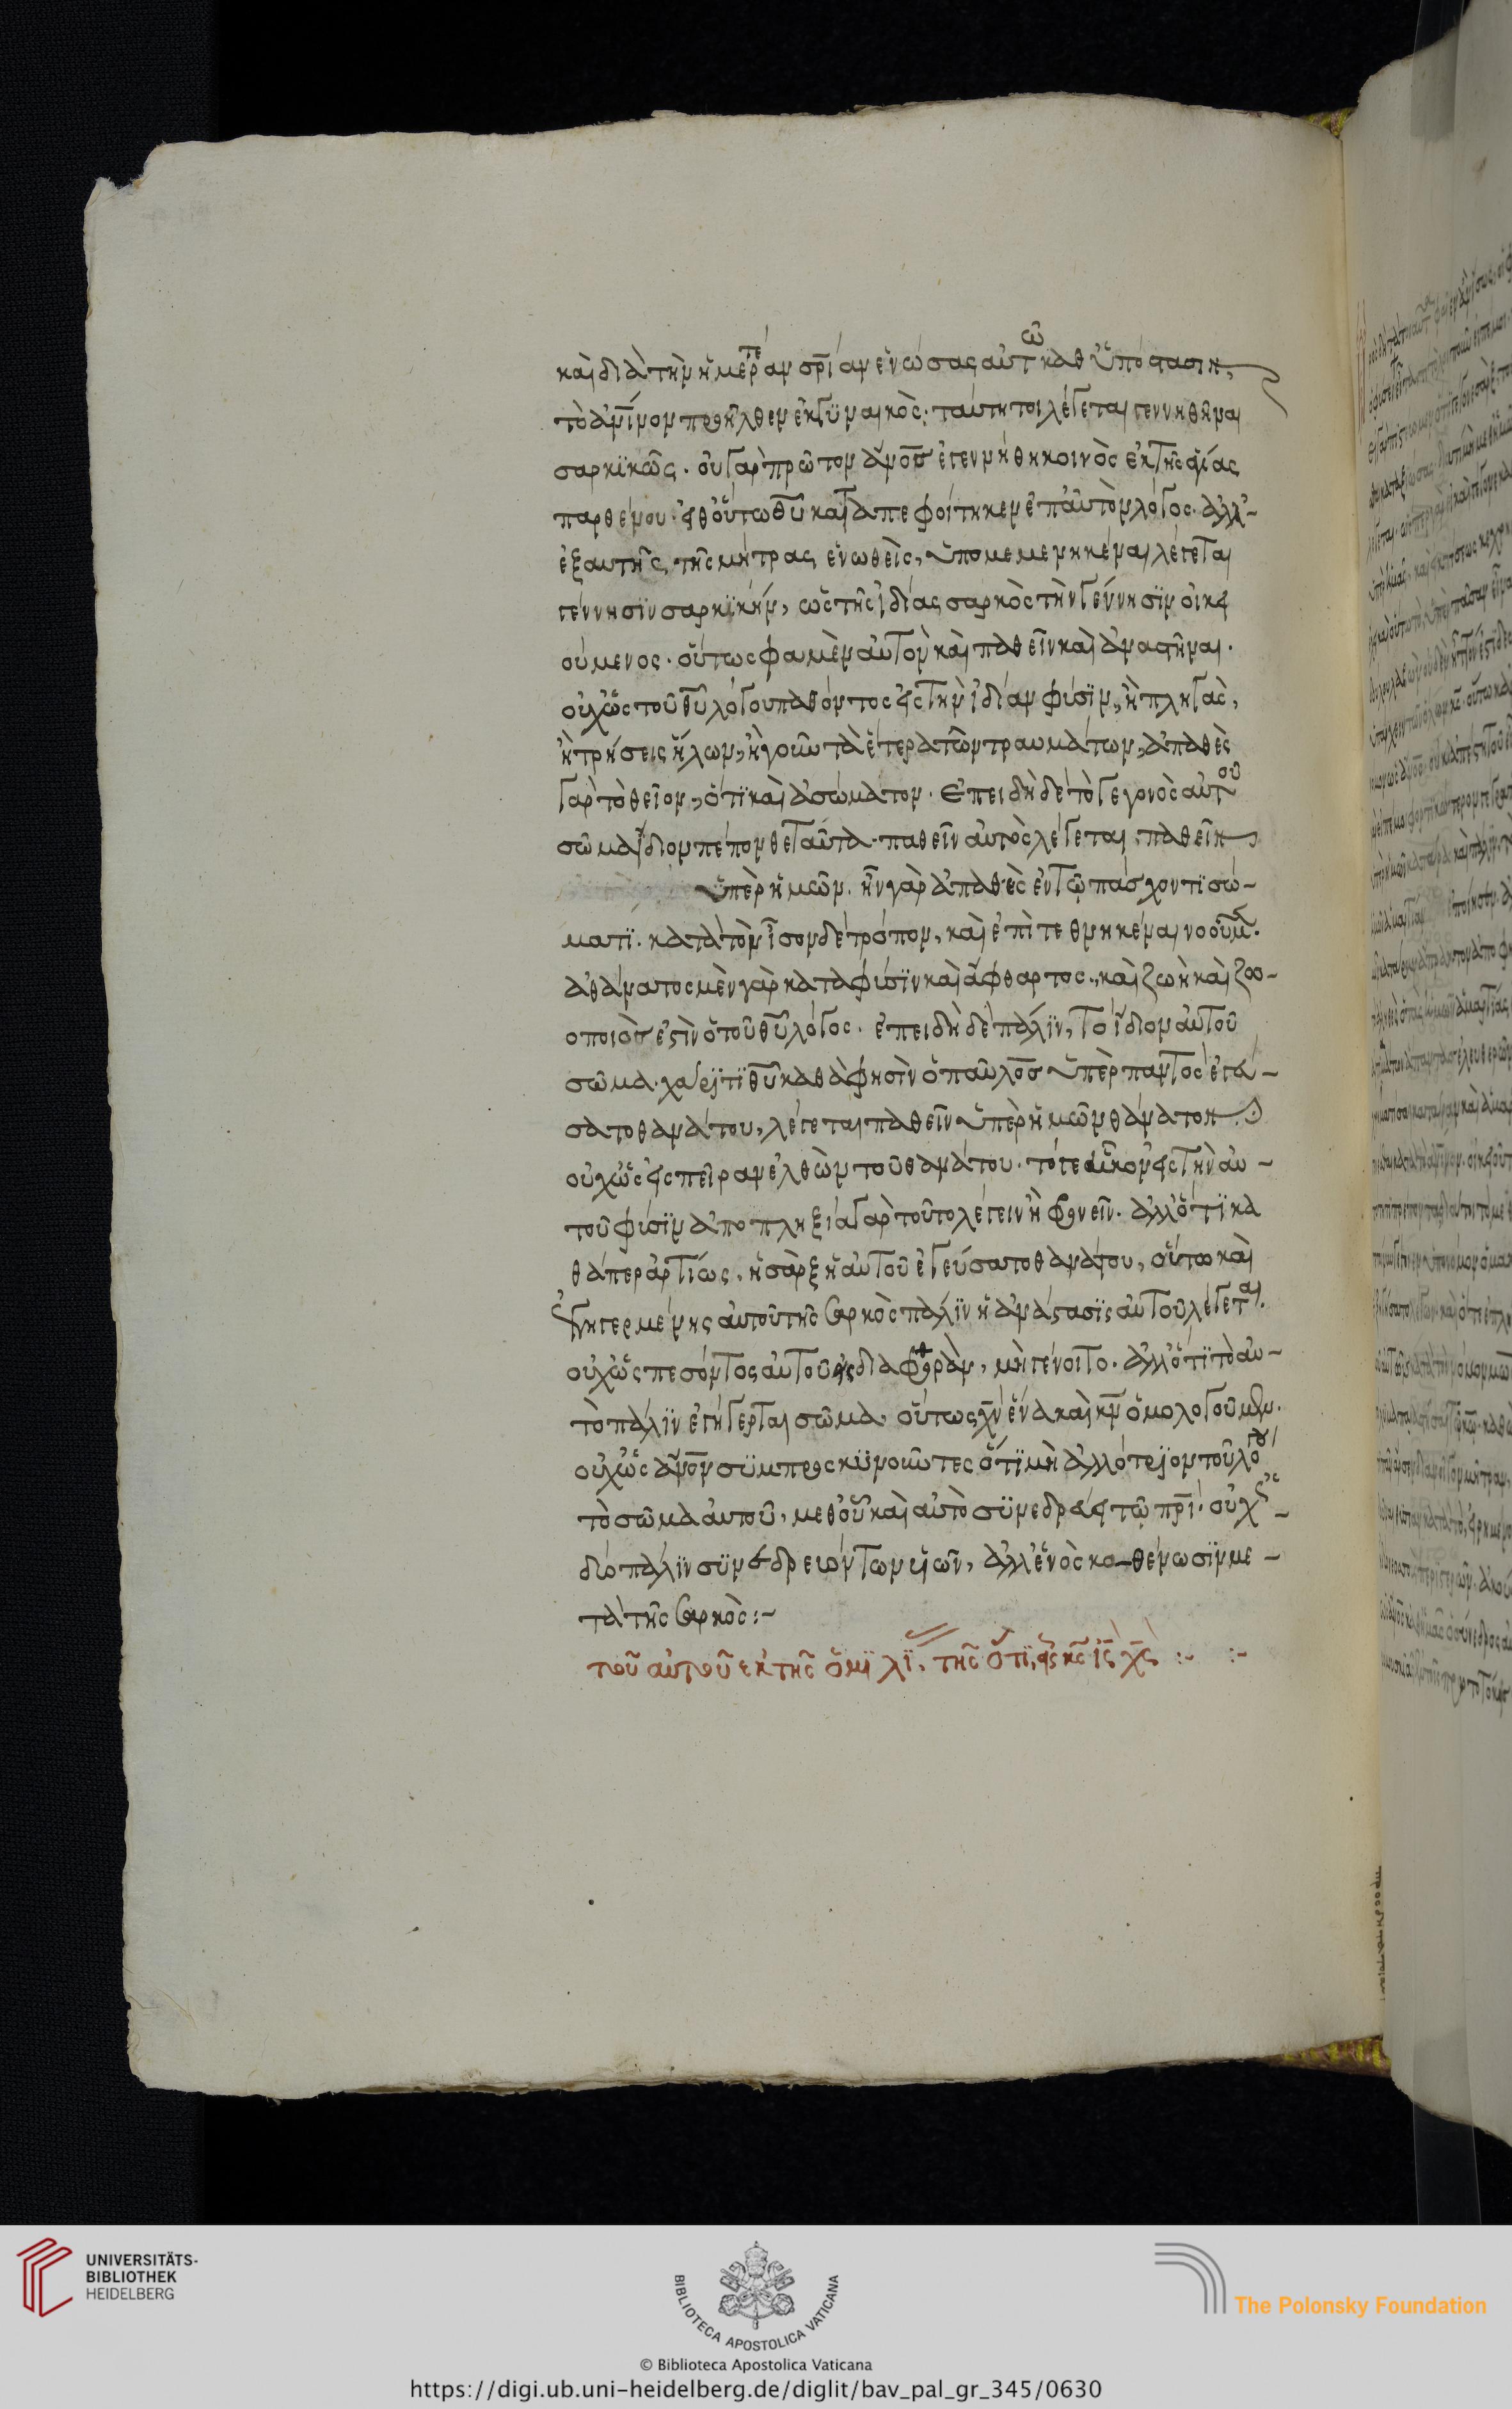 καὶ διὰ τὴν ἡμετέραν σρίαν ἑνώσας αὑτῶ καθ ὑπόστασιν,
τὸ ἀνινον προῆλθεν ἐκ γυναικὸς· ταύτητοι λέγεται γεννηθῆναι
σαρκικῶς. οὐ γὰρ πρῶτον ἄνος ἐγεννήθη κοινὸς ἐκ τῆς ἁγίας
παρθένου. εἶθ οὕτω καταπεφοίτηκεν ἐπ αὐτὸν λόγος. ἀλλ-
ἐξ αυτῆς τῆς μήτρας ἑνωθεὶς, ὑπομεμενηκέναι λέγεται
γέννησϊν σαρκϊκὴν, ὡς τῆς ἰδίας σαρκὸς τὴν γέννησϊν οἰκει
ούμενος. οὕτως φαμὲν αὐτὸν καὶ παθεῖν καὶ ἀναστῆναι.
οὐχ ὡς τοῦ θυ λόγου παθόντος εἰς τὴν ἰδίαν φύσϊν, ἢ πληγὰς,
ἢ τρήσεις ἥλων, ἢ γοῦν τὰ ἕτερα τῶν τραυμάτων, ἀπαθὲς
γὰρ τὸ θεῖον, ὅτϊ καὶ ἀσώματον. Ἐπειδὴ δὲ τὸ γεγονὸς αὐτοῦ
σῶμα ἴδιον πέπονθε ταῦτα. παθεῖν αὐτὸς λέγεται, παθεῖν
ὑπὲρ ἡμῶν. ἦν γὰρ ἀπαθὲς ἐν τῶ πάσχοντϊ σώ-
ματϊ. κατὰ τὸν ἴσον δὲ τρόπον, καὶ ἐπὶ τε θνηκέναι νοοῦμ.
ἀθάνατος μὲν γὰρ κατα φύσϊν καὶ ἄφθαρτος. καὶ ζωὴ καὶ ζωο-
οποιὸς ἐστὶν ὁ τοῦ θυ λόγος. ἐπειδὴ δὲ πάλϊν, τὸ ἴδιον αὐτοῦ
σῶμα. χάριτϊ θυ καθά φησὶν ὁ παῦλος ὑπὲρ παντὸς ἐγεύ-
σατο θανάτου, λέγεται παθεῖν ὑπὲρ ἡμῶν θάνατον.
οὐχ ὡς εἰς πεῖραν ἐλθὼν τοῦ θανάτου. τό γε ἧκον εἰς τὴν αὐ-
τοῦ φύσϊν ἀποπληξία γὰρ τοῦτο λέγειν ἢ φρονεῖν. ἀλλ ὅτϊ κα
θάπερ ἀρτίως, ἡ σὰρξ ἡ αὐτοῦ ἐγεύσατο θανάτου, οὕτω καὶ
ἐγηγερμένης αὐτοῦ τῆς σαρκὸς πάλϊν ἡ ἀνάστασϊς αὐτοῦ λέγεται.
οὐχ ὡς πεσόντος αὐτοῦ εἰς διαφθορὰν, μὴ γένοιτο. ἀλλ ὅτϊ τὸ αὐ-
τὸ πάλϊν ἐγήγερται σῶμα. οὕτως χν ἕνα καὶ κν ὁμολογοῦμεν.
οὐχ ὡς ἄνον συμπροσκϋνοῦντες ὅτϊ μὴ ἀλλότριον τοῦ λόγου
τὸ σῶμα αὐτοῦ, μεθ οὗ καὶ αὐτὸ σϋνεδρεύει τῶ πρι. οὐχ ὡς-
διό πάλϊν σϋνεδρευόντων υἱῶν, ἀλλ ἑνὸς καθ ἕνωσϊν με-
τὰ τῆς σαρκὸς :-
τοῦ αὐτοῦ ἐκ τῆς ὁμϊλϊ. τῆς ὅτϊ εἷς κς ις χς :- :-
UNIVERSITÄTS-
BIBLIOTHEK
HEIDELBERG
BIBLIOTECA APOSTOLICA VATICANA
The Polonsky Foundation
© Biblioteca Apostolica Vaticana
https://digi.ub.uni-heidelberg.de/diglit/bav_pal_gr_345/0630